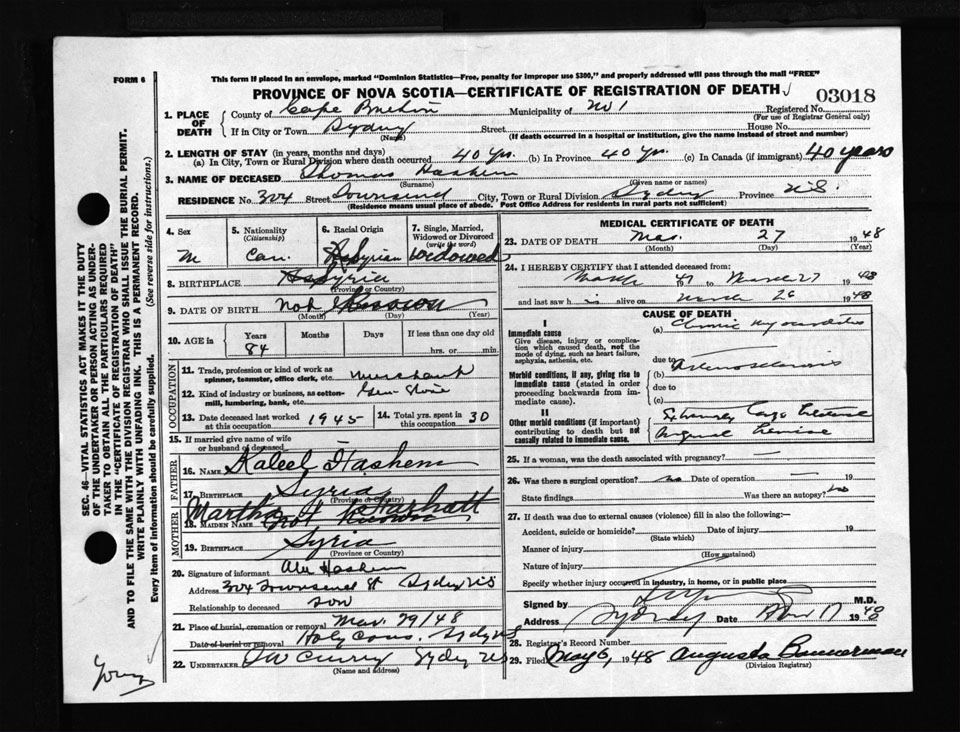 FORM 6
This form if placed in an envelope, marked "Dominion Statistics—Free, penalty for improper use $300," and properly addressed will pass through the mail "FREE"
PROVINCE OF NOVA SCOTIA—CERTIFICATE OF REGISTRATION OF DEATH 03018
1. PLACE OF DEATH County of Cape Breton Municipality of No 1 Registered No.
(For use of Registrar General only)
If in City or Town Sydney Street House No.
(Name) (If death occurred in a hospital or institution, give the name instead of street and number)
2. LENGTH OF STAY (in years, months and days)
(a) In City, Town or Rural Division where death occurred 40 Yr. (b) In Province 40 Yr. (c) In Canada (if immigrant) 40 years
3. NAME OF DECEASED Thomas Hashem
(Surname) (Given name or names)
RESIDENCE No. 304 Street Townsend City, Town or Rural Division Sydney Province N.S.
(Residence means usual place of abode. Post Office Address for residents in rural parts not sufficient)
4. Sex M
5. Nationality (Citizenship) Can.
6. Racial Origin Assyrian
7. Single, Married, Widowed or Divorced (write the word) Widowed
8. BIRTHPLACE Assyria
(Province or Country)
9. DATE OF BIRTH Not Known
(Month) (Day) (Year)
10. AGE in Years 84 Months Days If less than one day old hrs. or min.
OCCUPATION
11. Trade, profession or kind of work as spinner, teamster, office clerk, etc. Merchant
12. Kind of industry or business, as cotton-mill, lumbering, bank, etc. Gen Store
13. Date deceased last worked at this occupation 1945
14. Total yrs. spent in this occupation 30
15. If married give name of wife or husband of deceased
FATHER
16. NAME Kaleel Hashem
17. BIRTHPLACE Syria
(Province or Country)
MOTHER
Martha Farhatt
18. MAIDEN NAME Not Known
19. BIRTHPLACE Syria
(Province or Country)
20. Signature of informant Alex Hashem
Address 304 Townsend St Sydney NS
Relationship to deceased son
21. Place of burial, cremation or removal Holy Cross, Sydney NS
Date of burial or removal Mar. 29/48
22. UNDERTAKER T W Curry Sydney NS
(Name and address)
MEDICAL CERTIFICATE OF DEATH
23. DATE OF DEATH Mar. 27 1948
(Month) (Day) (Year)
24. I HEREBY CERTIFY that I attended deceased from:
March 47 to March 27 1948
and last saw h is alive on March 26 1948
CAUSE OF DEATH
I
Immediate cause
Give disease, injury or complication which caused death, not the mode of dying, such as heart failure, asphyxia, asthenia, etc.
(a) Chronic Myocarditis
due to
Morbid conditions, if any, giving rise to immediate cause (stated in order proceeding backwards from immediate cause).
(b) Arteriosclerosis
due to
(c)
II
Other morbid conditions (if important) contributing to death but not causally related to immediate cause.
25. If a woman, was the death associated with pregnancy?
26. Was there a surgical operation? no Date of operation 19
State findings Was there an autopsy? no
27. If death was due to external causes (violence) fill in also the following:
Accident, suicide or homicide? Date of injury 19
(State which)
Manner of injury
(How sustained)
Nature of injury
Specify whether injury occurred in industry, in home, or in public place
Signed by M.D.
Address Sydney Date 17 1948
28. Registrar's Record Number
29. Filed May 6, 1948 Augusta Bannerman
(Division Registrar)
SEC. 46—VITAL STATISTICS ACT MAKES IT THE DUTY OF THE UNDERTAKER OR PERSON ACTING AS UNDERTAKER TO OBTAIN ALL THE PARTICULARS REQUIRED IN THE "CERTIFICATE OF REGISTRATION OF DEATH" AND TO FILE THE SAME WITH THE DIVISION REGISTRAR WHO SHALL ISSUE THE BURIAL PERMIT.
WRITE PLAINLY WITH UNFADING INK. THIS IS A PERMANENT RECORD.
Every item of information should be carefully supplied. (See reverse side for instructions.)